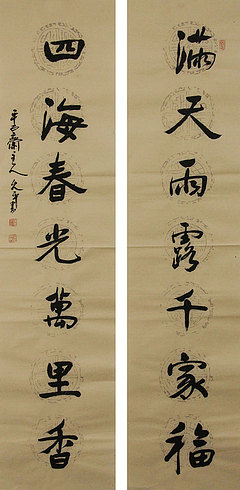 滿天雨露千家福
四海春光萬里香